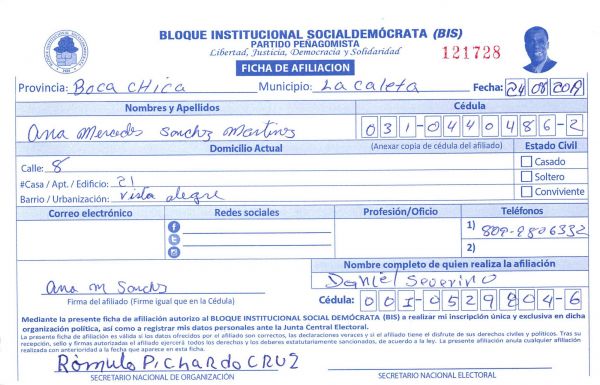 BLOQUE INSTITUCIONAL SOCIALDEMÓCRATA (BIS)
PARTIDO PEÑAGOMISTA
Libertad, Justicia, Democracia y Solidaridad
121728
FICHA DE AFILIACION
Provincia: Boca chica Municipio: La caleta Fecha: 24 08 2019
Nombres y Apellidos Cédula
Ana Mercedes Sanchez Martinez 031-0440486-2
Domicilio Actual (Anexar copia de cédula del afiliado) Estado Civil
Calle: 8 Casado
#Casa / Apt. / Edificio: 21 Soltero
Barrio / Urbanización: Vista alegre Conviviente
Correo electrónico Redes sociales Profesión/Oficio Teléfonos
1) 809-9806332
2)
Nombre completo de quien realiza la afiliación
Ana M Sanchez Daniel Severino
Firma del afiliado (Firme igual que en la Cédula) Cédula: 001-0529804-6
Mediante la presente ficha de afiliación autorizo al BLOQUE INSTITUCIONAL SOCIAL DEMÓCRATA (BIS) a realizar mi inscripción única y exclusiva en dicha
organización política, así como a registrar mis datos personales ante la Junta Central Electoral.
La presente ficha de afiliación es válida si los datos ofrecidos por el afiliado son correctos, las declaraciones veraces y si el afiliado tiene el disfrute de sus derechos civiles y políticos. Tras su
recepción, sello y firmas autorizadas el afiliado ejercerá todos los derechos y los deberes estatutariamente sancionados, de acuerdo a la ley. La presente afiliación anula cualquier afiliación
realizada con anterioridad a la fecha que aparece en esta ficha.
Rómulo Pichardo CRUZ
SECRETARIO NACIONAL DE ORGANIZACIÓN SECRETARIO NACIONAL ELECTORAL